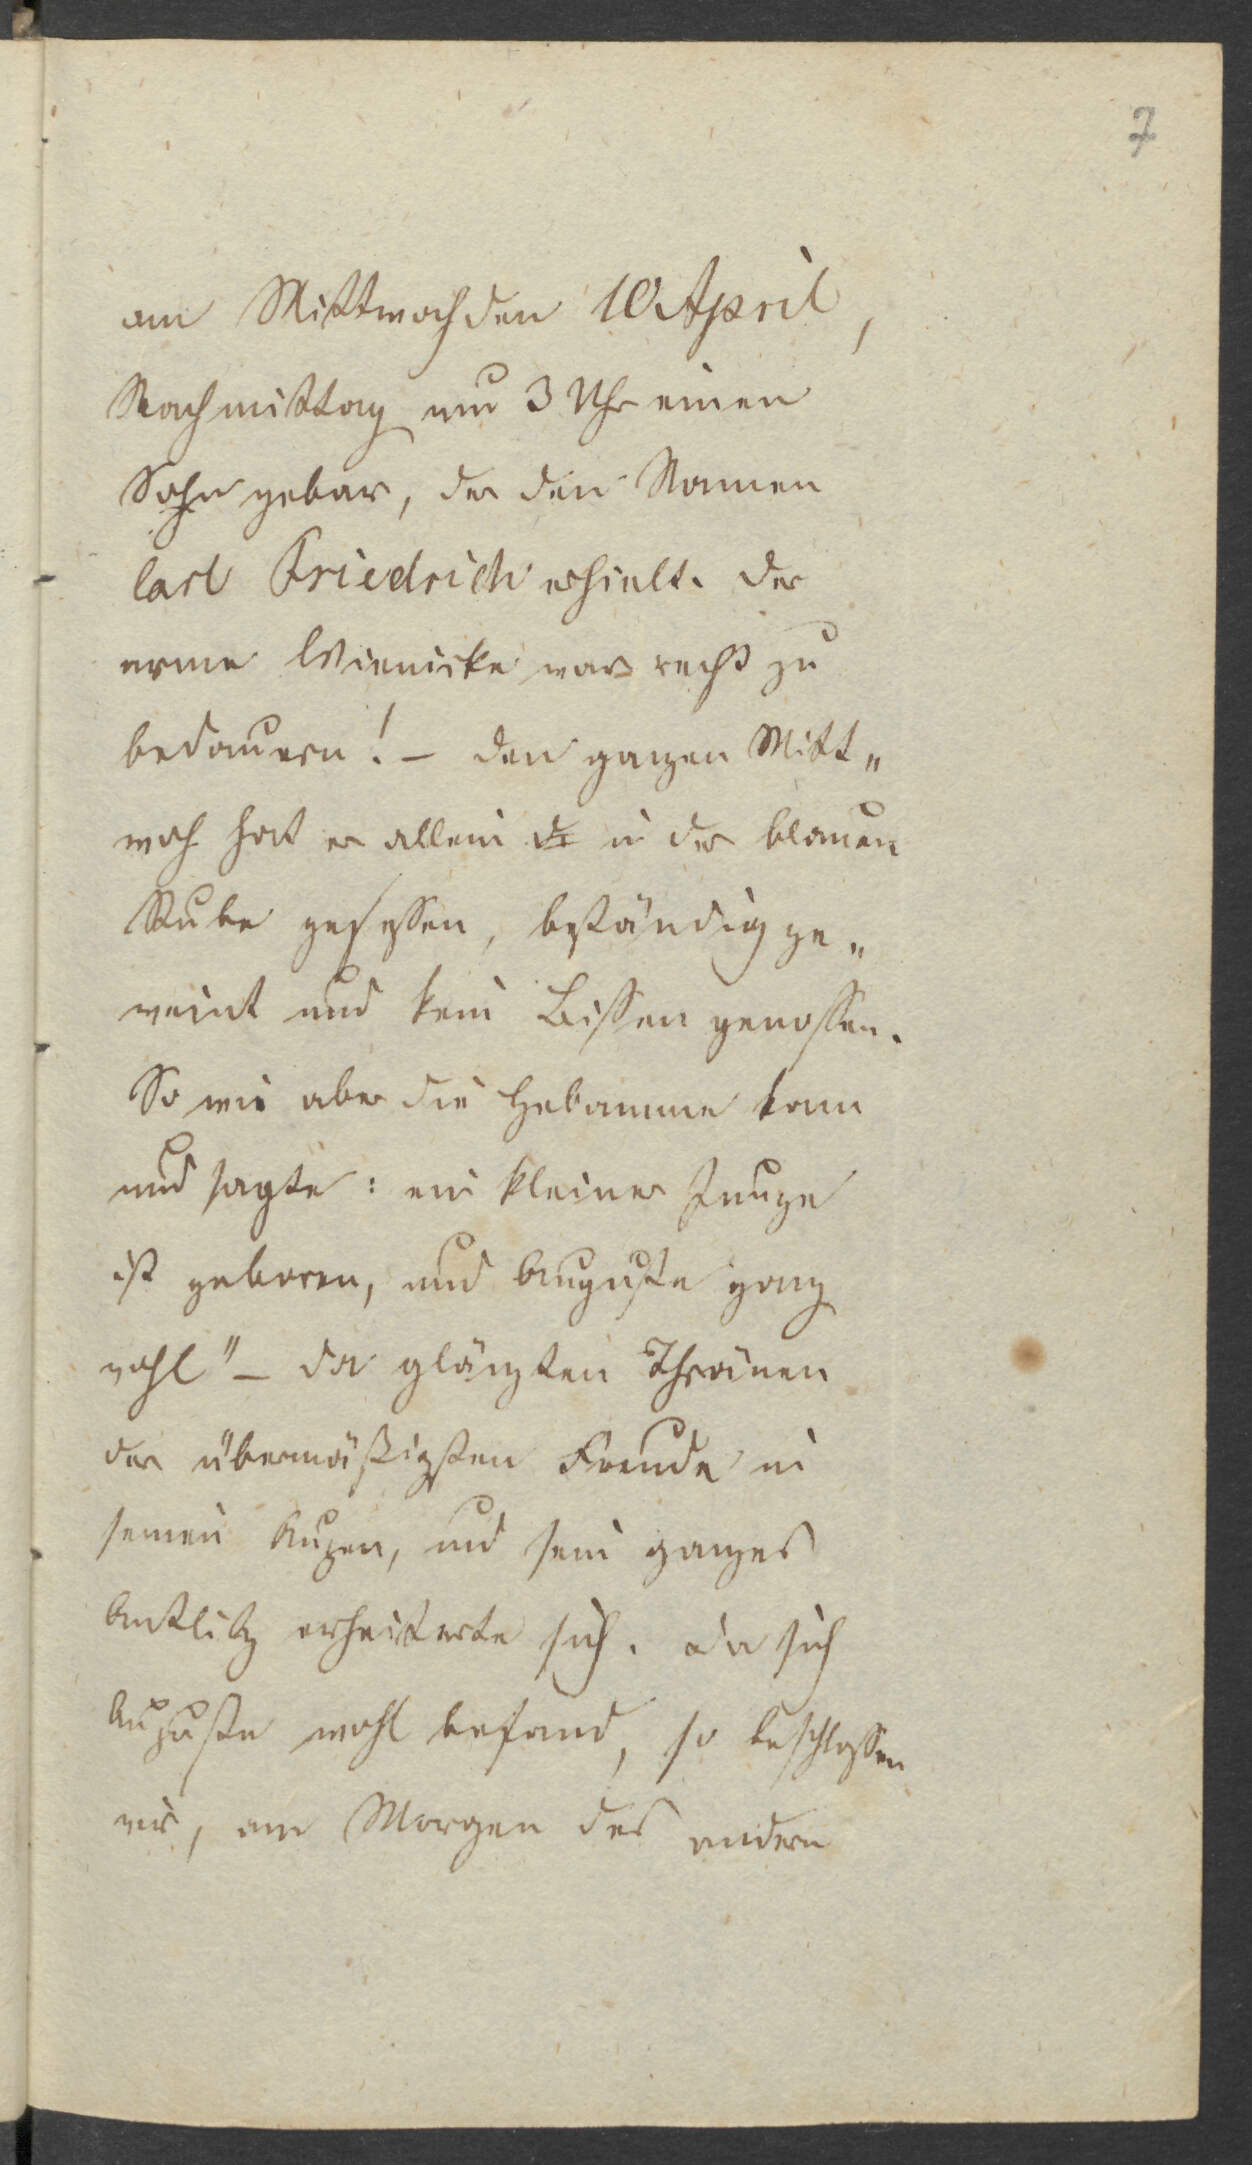 7
am Mittwoch den 10 April,
Nachmittag um 3 Uhr einen
Sohn gebar, der den Namen
Carl Friedrich erhielt. Der
arme Wienicke war recht zu
bedauern! – Den ganzen Mitt„
woch hat er allein in der blauen
Stube gesessen, beständig ge„
weint und kein Bissen genossen.
So wie aber die Hebamme kam
und sagte: ein kleiner Junge
ist geboren, und Auguste ganz
wohl" – da glänzten Thränen
der übermäßigsten Freude in
seinen Augen, und sein ganzes
Antlitz erheiterte sich. Da sich
Auguste wohl befand, so beschlossen
wir, am Morgen des andern